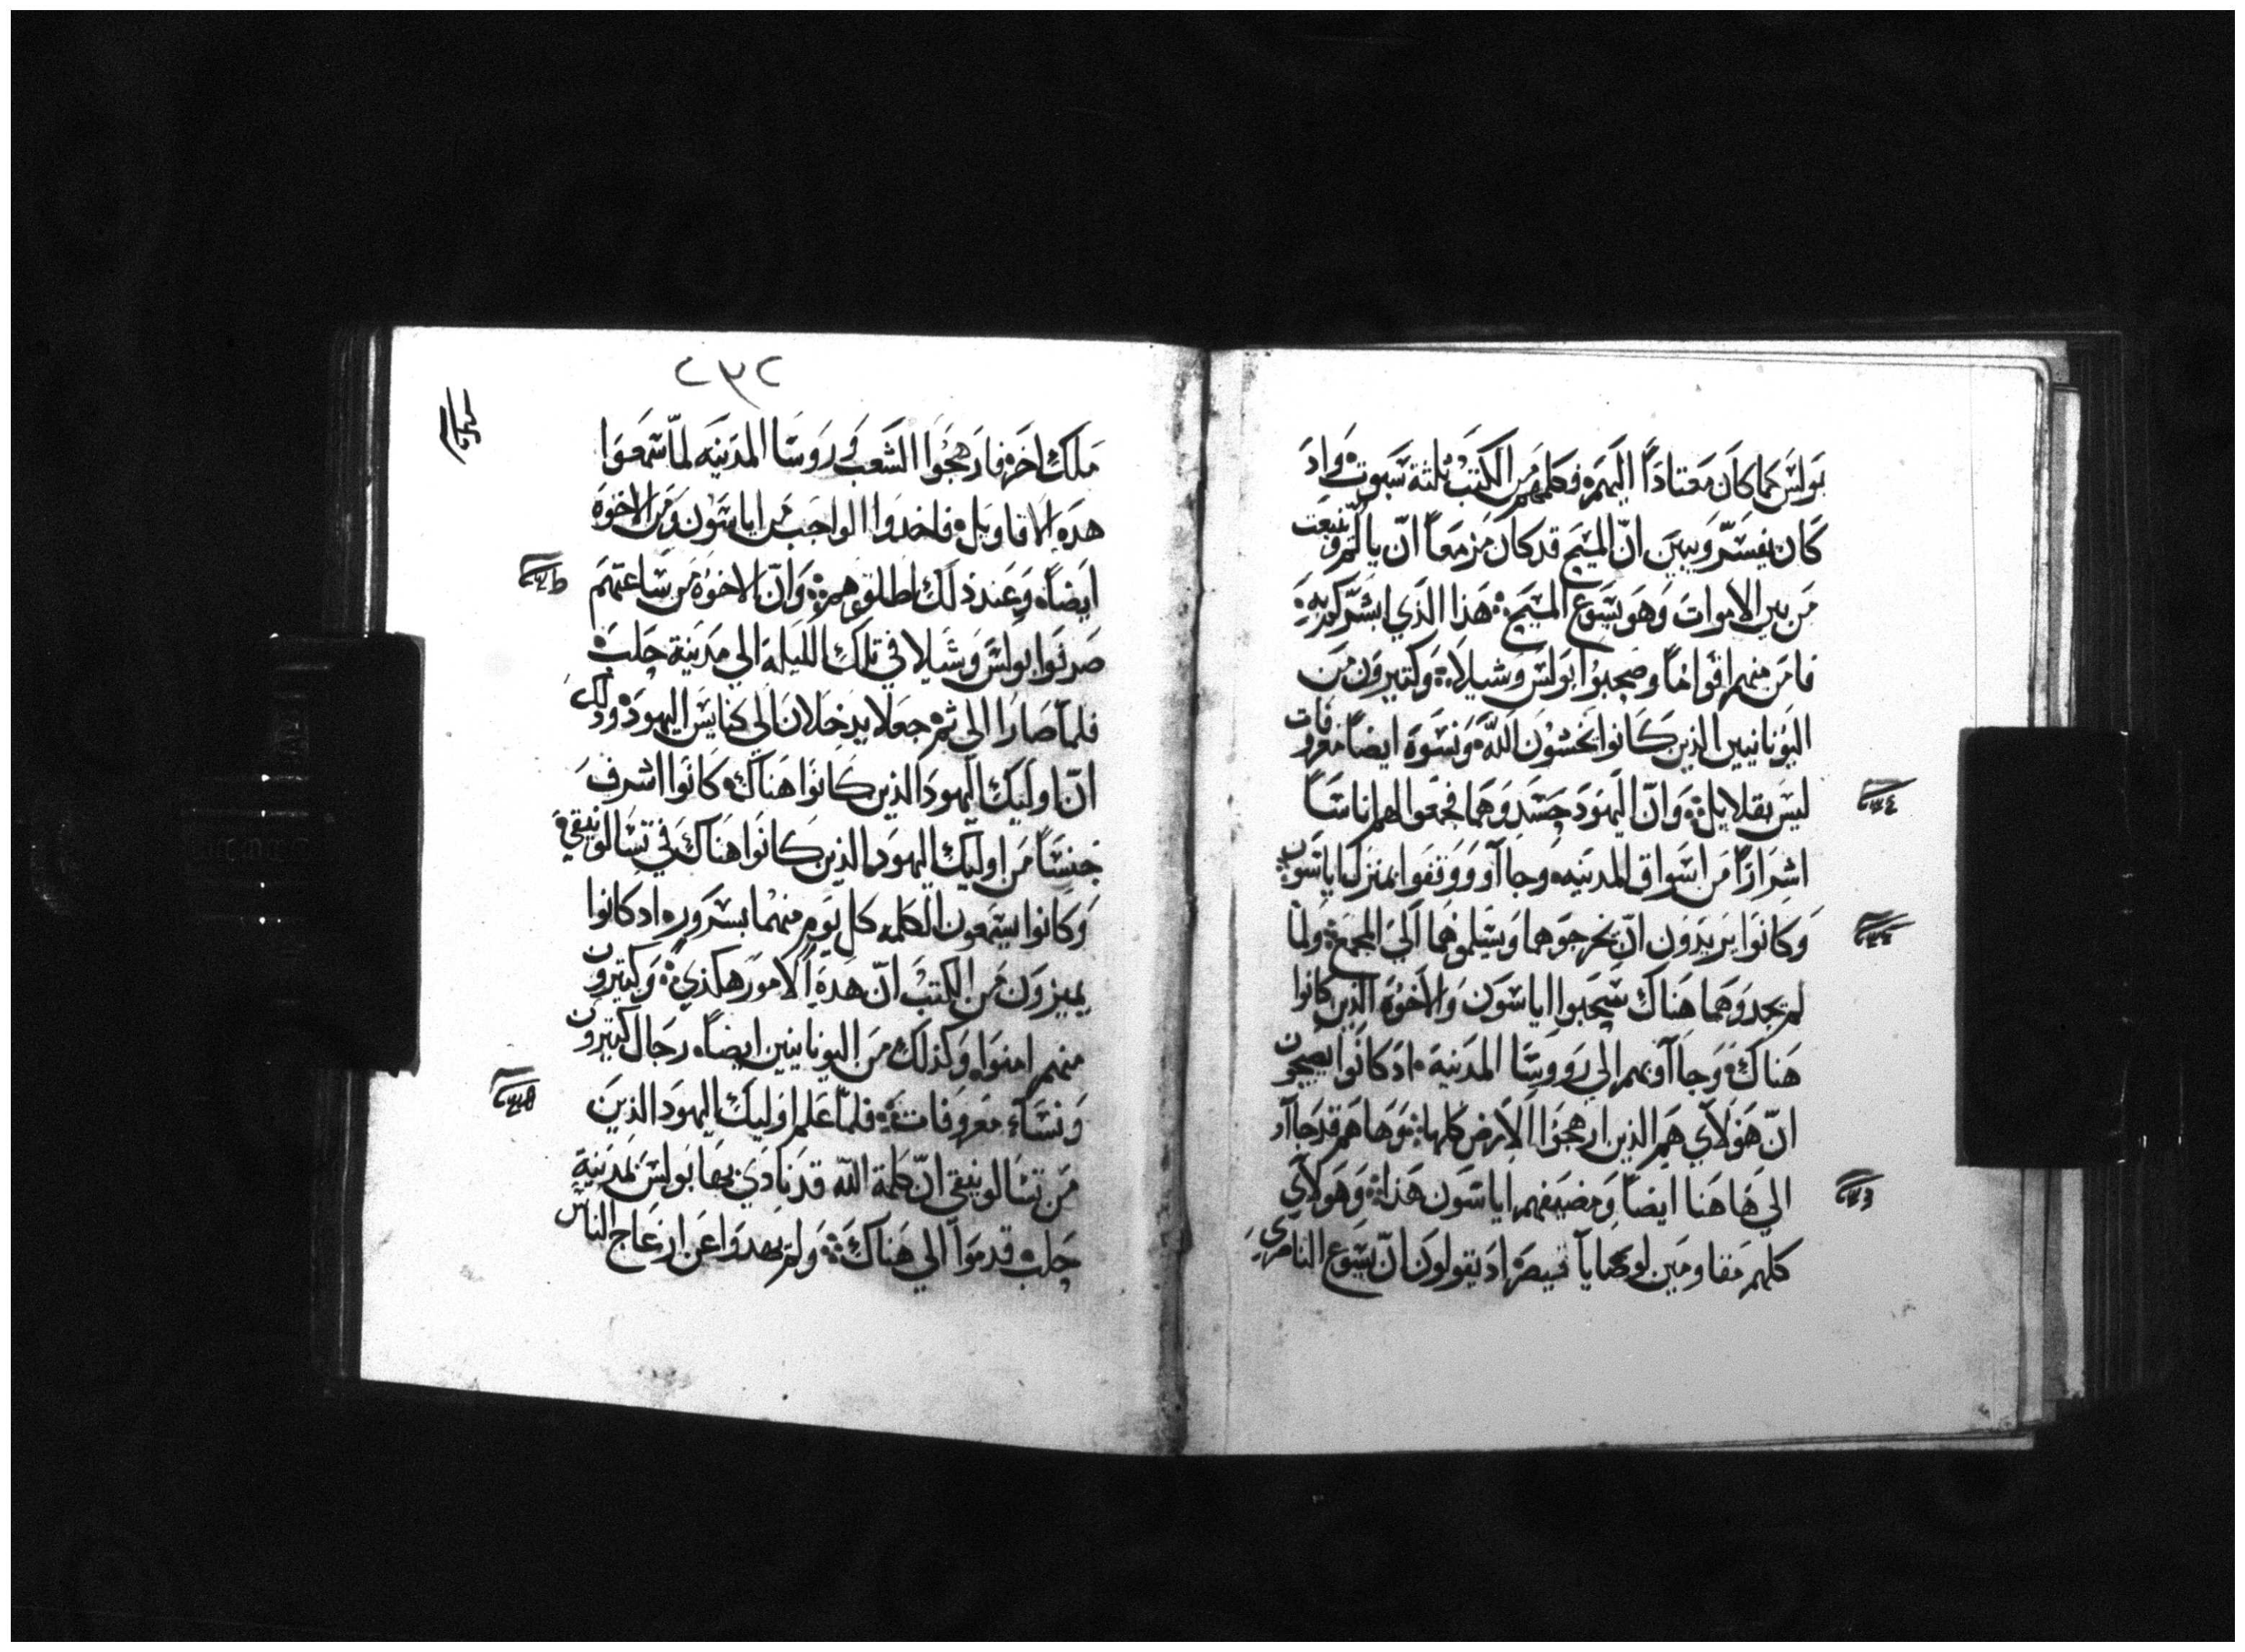 بولس كما كان معتادًا اليهم فكلمهم من الكتب ثلثة سبوت واد
كان يفسر ويبين انّ المسيح قد كان مزمعاً انّ يالم وينبعت
من بين الاموات وهو يسوع المسيح هذا الذي ابشركم به
فامن منهم افواهًا وصحبوا بولس وشيلا وكتيرون من
اليونانيين الذين كانوا يخشون اللّه ونسوة ايضاً معروفات
ليس بقلايل وانّ اليهود حسدوهما فجمعوا لهم اناسًا
اشرارًا من اسواق المدينه وجاآو ووقفوا بمنزل اياسون
وكانوا يريدون انّ يخرجوهما ويسلموهما الي المجمع ولما
لم يجدوهما هناك سحبوا اياسون والاخوة الذين كانوا
هناك وجاآو بهم الي رووسا المدينة اد كانوا يصيحون
انّ هولاي هم الذين ارهجوا الارض كلها وها هم قد جاآو
الي هاهنا ايضاً ومضيفهم اياسون هذا وهولاي
كلهم مقاومين لوصايا قيصر اد يقولون انّ يسوع الناصري
٢٣٢
ملك اخر فارهجوا الشعب وروسا المدينه لمّا سمعوا
هده الاقاويل فاخدوا الواجب من اياسون ومن الاخوة
ايضاً وعند ذلك اطلقوهم وانّ الاخوة من ساعتهم
صرفوا بولس وشيلا في تلك الليلة الي مدينة حلب
فلما صارا الي ثم جعلا يدخلان الي كنايس اليهود ودلك
انّ اوليك اليهود الذين كانوا هناك كانوا اشرف
جنسًا من اوليك اليهود الذين كانوا هناك في تسالونيقي
وكانوا يسمعون الكلمه كل يوم منهما بسرور اد كانوا
يميزون من الكتب انّ هده الامور هكذي وكتيرون
منهم امنوا وكذلك من اليونانيين ايضاً رجال كتيرون
ونساء معروفات فلمّا علم اوليك اليهود الذين
من تسالونيقي انّ كلمة اللّه قد نادي بها بولس بمدينة
حلب قدموا الي هناك ولم يهدوا عن ارعاج الناس